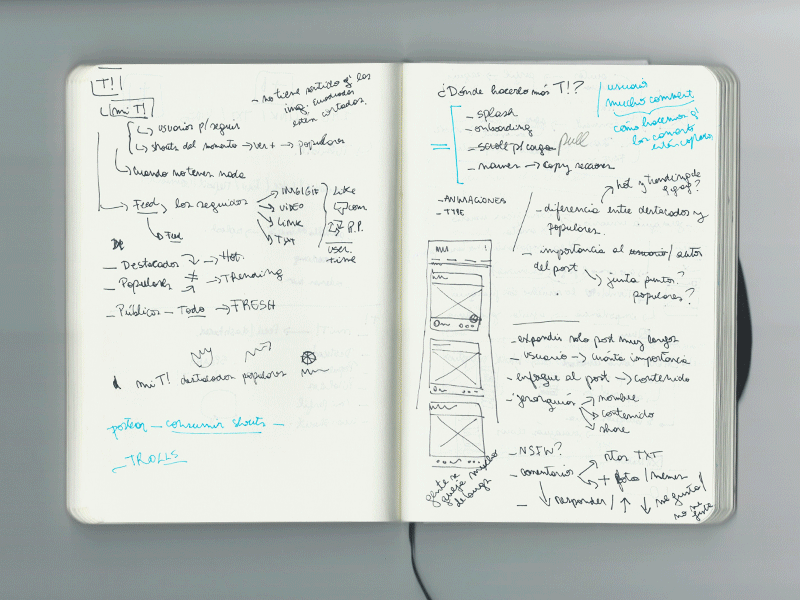 T!
mi T!
- no tiene sentido q' las
img. cuadradas
estén cortadas.
usuarios p/ seguir
shouts del momento → ver + → populares
Cuando no tenes nada
Feed los seguidos
IMG/GIF
VIDEO
LINK
TXT
Like
com
R.P.
user
time
- Destacados → Hot
- Populares ≠ → TRending
- Públicos - Todo → FRESH
mi T! destacados populares
postear - consumir shouts -
- TROLLS
¿Dónde hacerlo más T!?
- splash
- onboarding
- scroll p/ cargar pull
- names → copy secciones
usuario
mucho comment
cómo hacemos q'
los comments
- ANIMACIONES
- TYPE
hot y trending de
9gag?
- diferencia entre destacados y
populares.
- importancia al usuario / autor
del post
junta puntos?
populares?
mi !
- expandir solo post muy largos
- usuario → cuánta importancia
- enfoque al post → contenido
- jerarquías → nombre
→ contenido
→ share
- NSFW?
- comentarios → rtas TXT
→ + foto / memes
- ↓ responder / ↑ ↓ me gusta /
no me
gusta
gente se
queja mucho
de largos